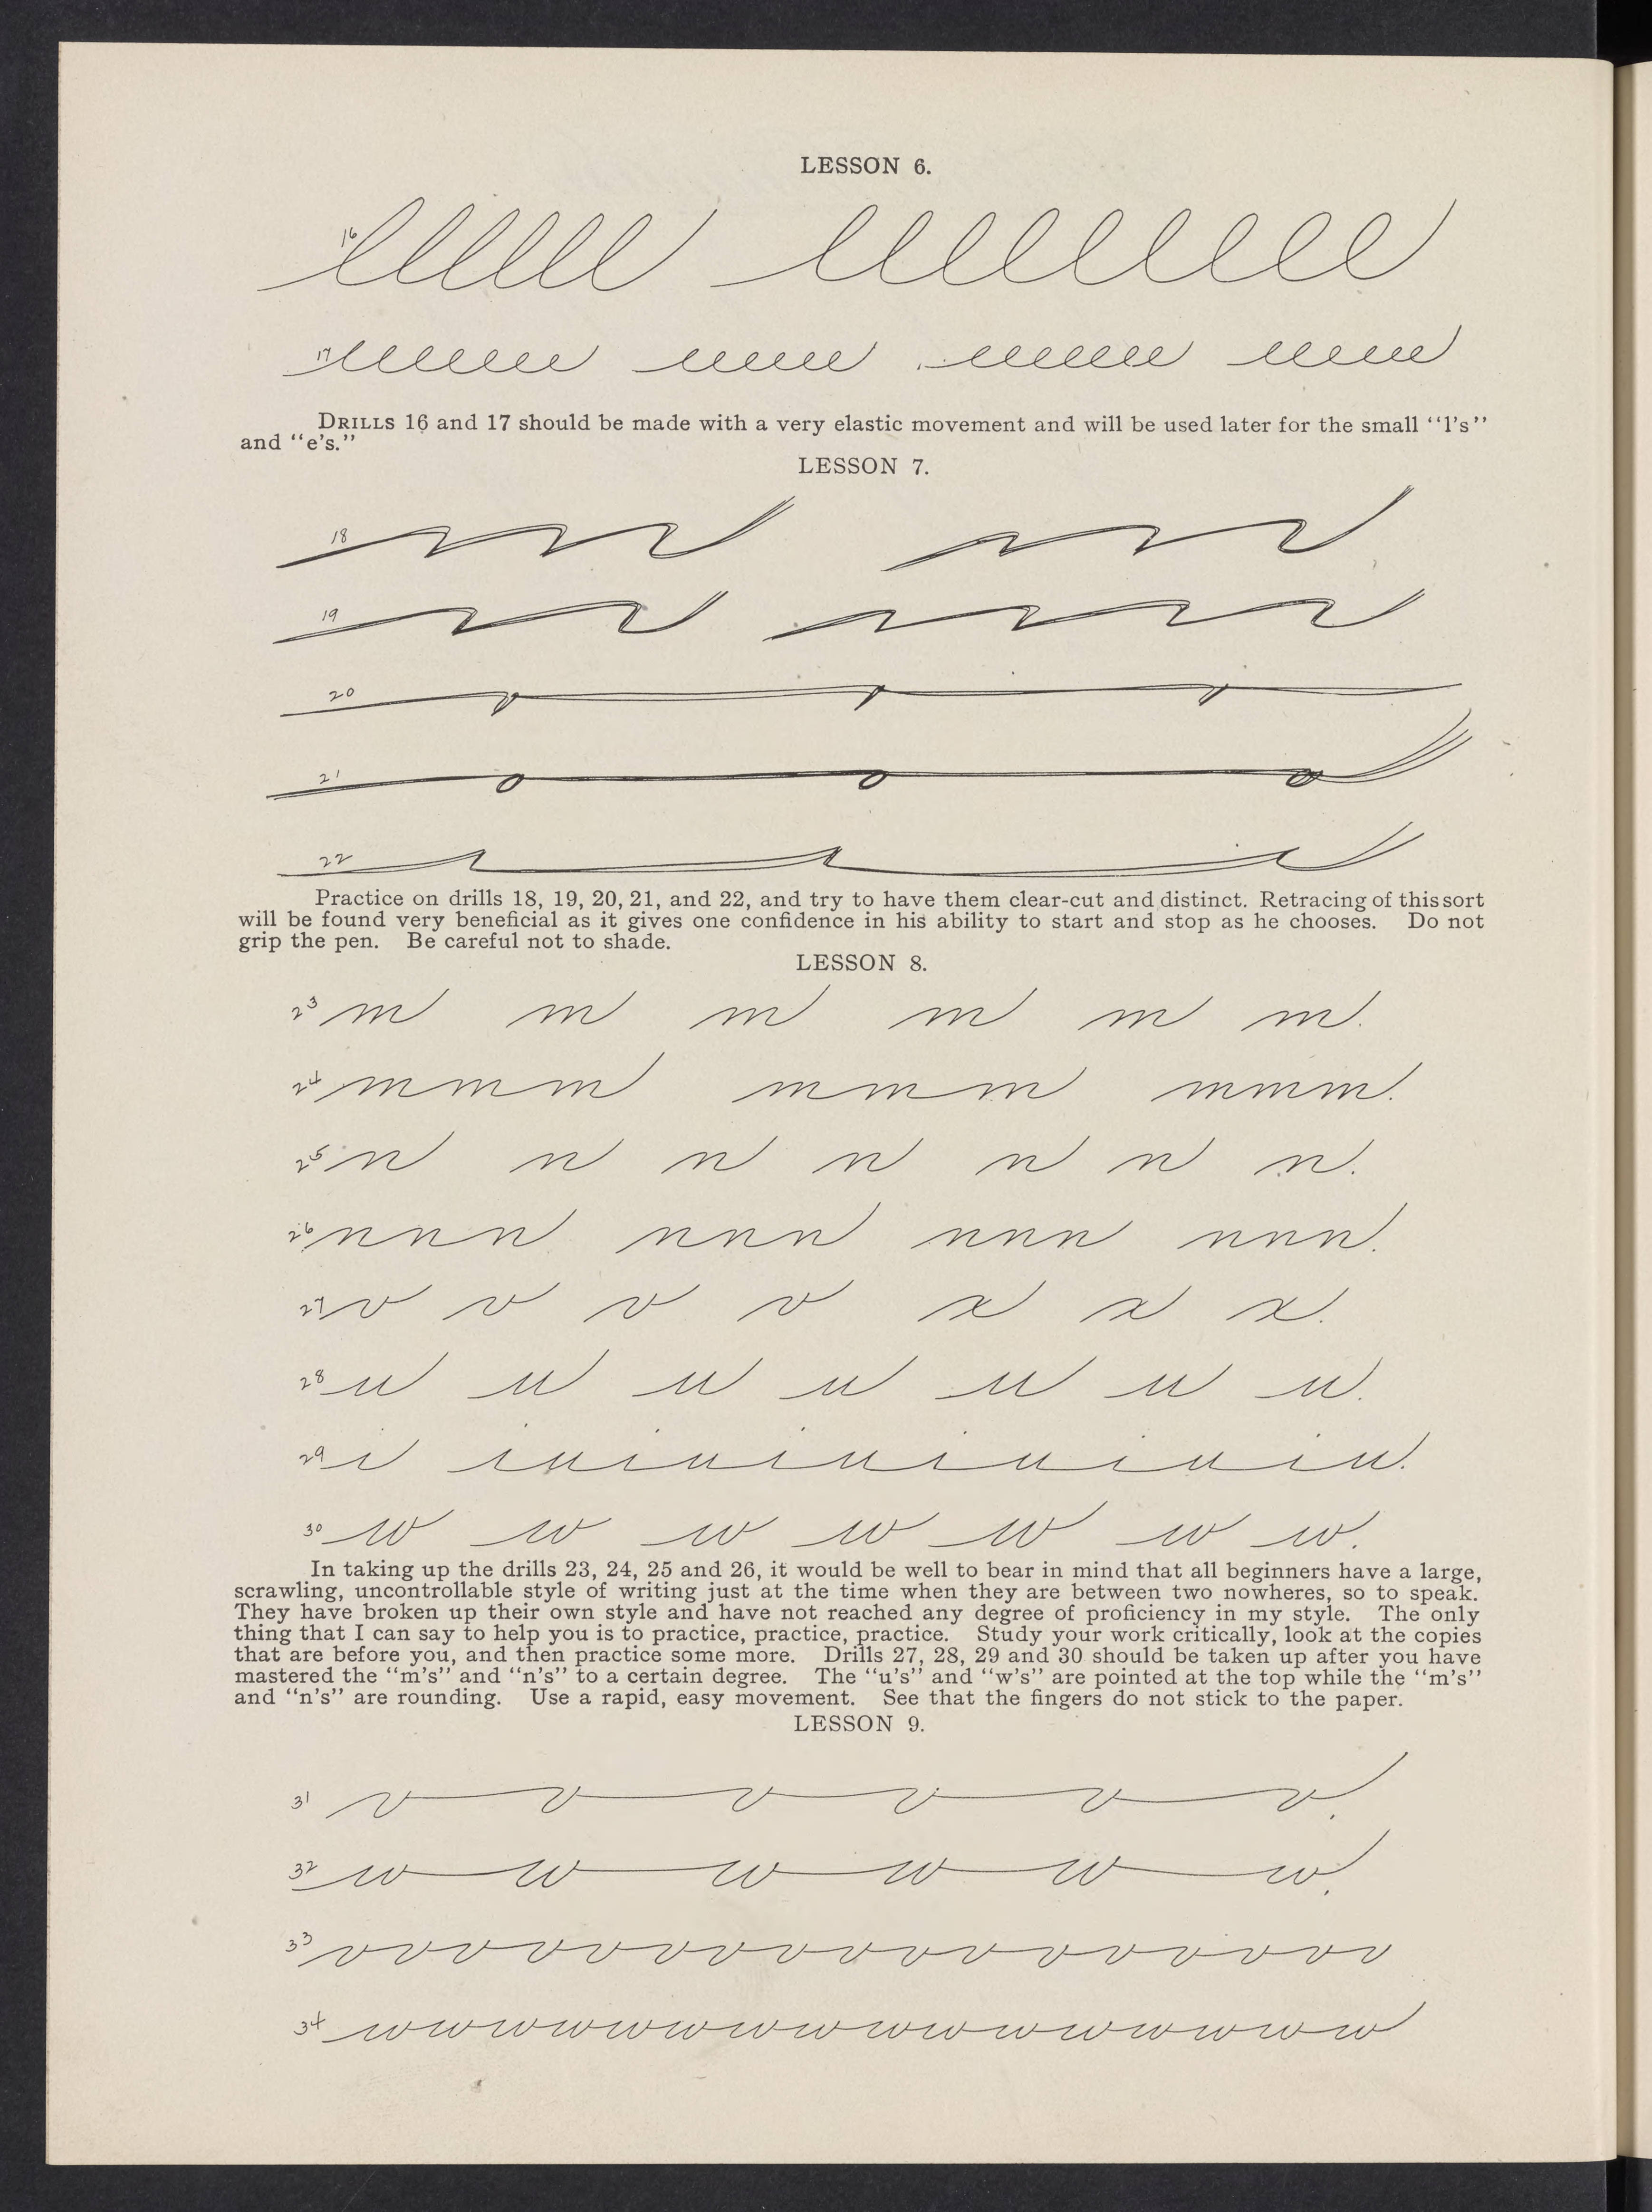 LESSON 6.
16 llllll llllllll
17 eeeeeee eeeee eeeeeee eeeee
DRILLS 16 and 17 should be made with a very elastic movement and will be used later for the small "l's"
and "e's."
LESSON 7.
18
19
20
21
22
Practice on drills 18, 19, 20, 21, and 22, and try to have them clear-cut and distinct. Retracing of this sort
will be found very beneficial as it gives one confidence in his ability to start and stop as he chooses. Do not
grip the pen. Be careful not to shade.
LESSON 8.
23 m m m m m m.
24 mmm mmm mmm.
25 n n n n n n n.
26 nnn nnn nnn nnn.
27 v v v v x x x.
28 u u u u u u u.
29 i iuiuiuiuiu.
30 w w w w w w w.
In taking up the drills 23, 24, 25 and 26, it would be well to bear in mind that all beginners have a large,
scrawling, uncontrollable style of writing just at the time when they are between two nowheres, so to speak.
They have broken up their own style and have not reached any degree of proficiency in my style. The only
thing that I can say to help you is to practice, practice, practice. Study your work critically, look at the copies
that are before you, and then practice some more. Drills 27, 28, 29 and 30 should be taken up after you have
mastered the "m's" and "n's" to a certain degree. The "u's" and "w's" are pointed at the top while the "m's"
and "n's" are rounding. Use a rapid, easy movement. See that the fingers do not stick to the paper.
LESSON 9.
31 v v v v v v.
32 w w w w w w.
33 vvvvvvvvvvvvvvvvv
34 wwwwwwwwwwwwwwww